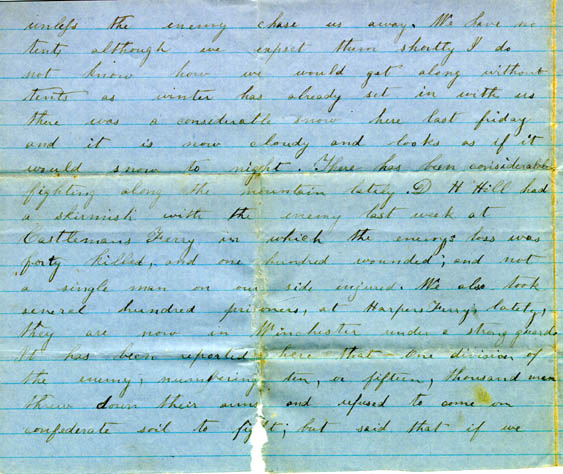 unless the enemy chase us away. We have no
tents although we expect them shortly I do
not know how we would get along without
tents as winter has already set in with us
there was a considerable snow here last friday
and it is now cloudy and looks as if it
would snow to night. There has been considerable
fighting along the mountain lately. D H Hill had
a skirmish with the enemy last week at
Castlemans Ferry in which the enemys loss was
forty killed, and one hundred wounded; and not
a single man on our side injured. We also took
several hundred prisoners, at Harpers Ferry, lately,
they are now in Winchester under a strong guard.
It has been reported here that one division of
the enemy, numbering ten, or fifteen, thousand men
threw down their arms and refused to come on
confederate soil to fight; but said that if we